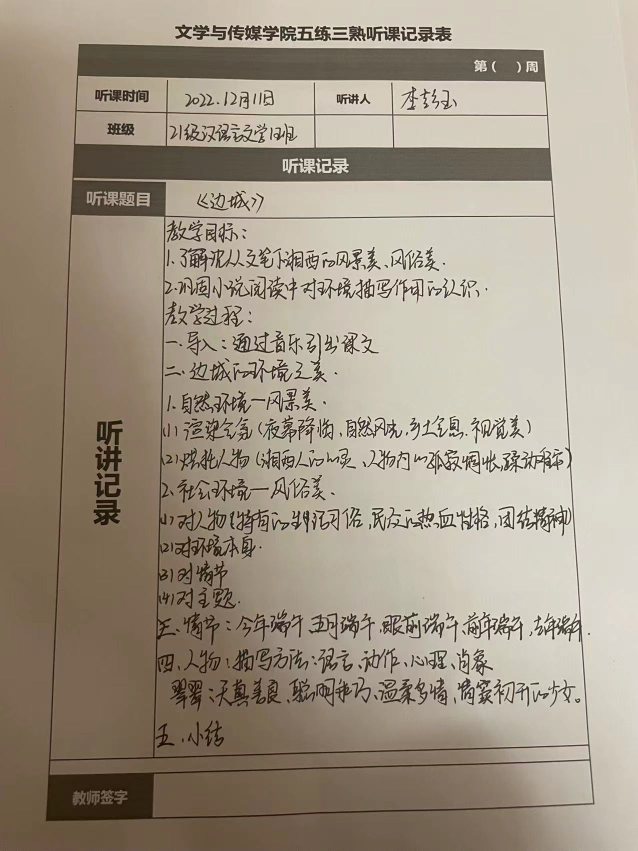 文学与传媒学院五练三熟听课记录表
第( )周
听课时间 2022.12月11日 听讲人
班级 21级汉语言文学1班
听课记录
听课题目 《边城》
听讲记录
教学目标:
1.了解沈从文笔下湘西的风景美、风俗美.
2.巩固小说阅读中对环境描写作用的认识.
教学过程:
一.导入:通过音乐引出课文
二.边城的环境之美.
1.自然环境—风景美.
(1)渲染气氛(夜幕降临、自然风光,乡土气息.视觉美)
(2)烘托人物(湘西人的心灵、人物内心孤寂惆怅、)
2.社会环境—风俗美.
(1)对人物(特有的生活习俗,民众的热血性格,团结精神)
(2)对环境本身.
(3)对情节
(4)对主题.
三、情节:今年端午,五月端午,眼前端午、前年端午,去年端午.
四、人物:描写方法:语言、动作、心理、肖象
翠翠:天真善良、聪明乖巧、温柔多情、情窦初开的少女。
五.小结
教师签字